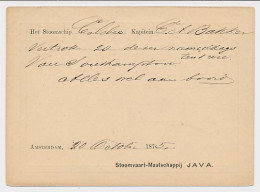 Het Stoomschip Celebes Kapitein C. A. Bakker
Vertrok 20 dezer namiddags
van Southampton
alles wel aan boord
AMSTERDAM, 20 October 187
Stoomvaart-Maatschappij JAVA.